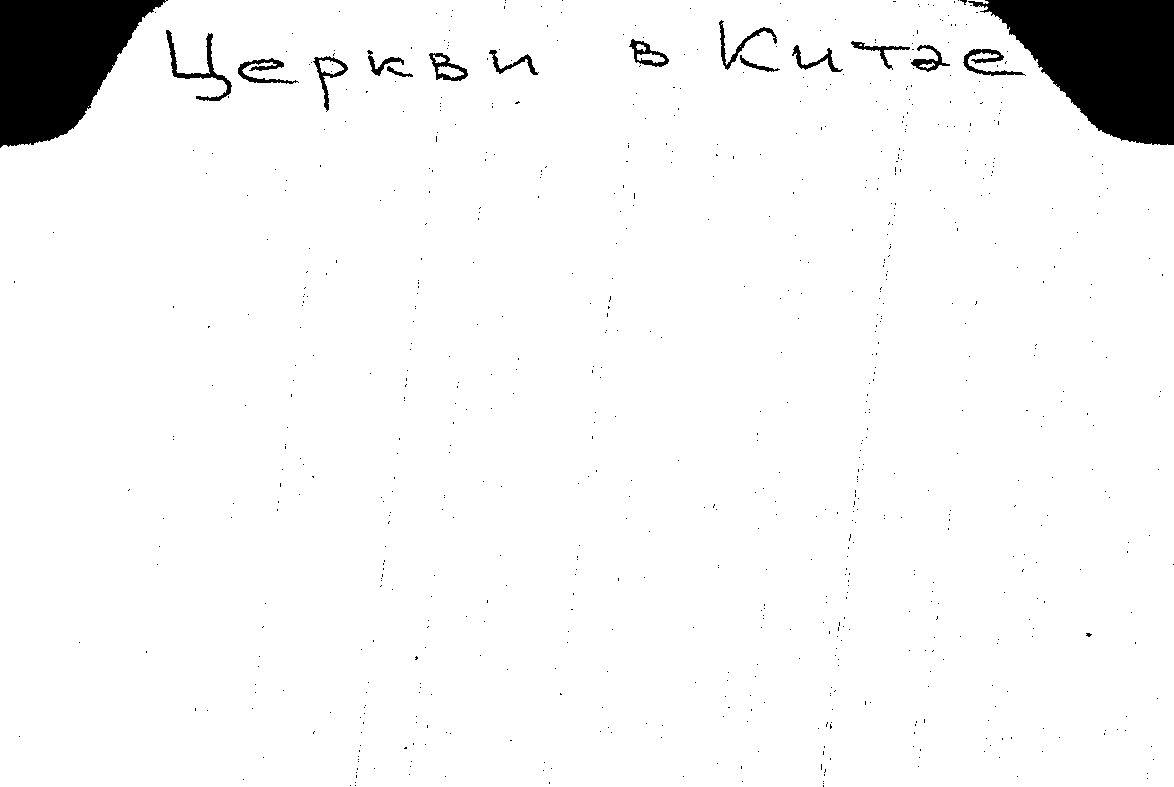 Церкви в Китае